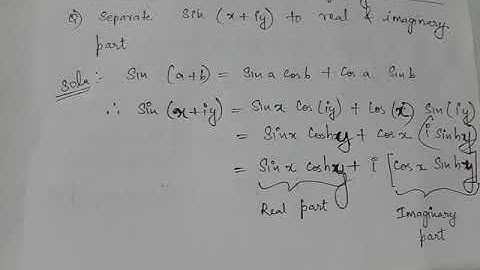 Q) Separate Sin (x + iy) to real & imaginary
part
Soln :- Sin (a+b) = Sin a Cos b + Cos a Sin b
∴ Sin (x+iy) = Sin x Cos (iy) + Cos (x) Sin (iy)
= Sin x Cosh y + Cos x (i Sinh y)
= Sin x Cosh y + i [Cos x Sinh y]
Real part
Imaginary
part